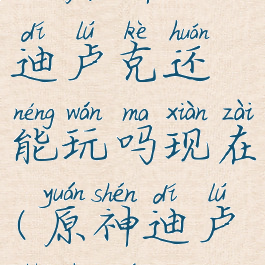 dí lú kè huán
迪卢克还
néng wán ma xiàn zài
能玩吗现在
yuán shén dí lú
(原神迪卢